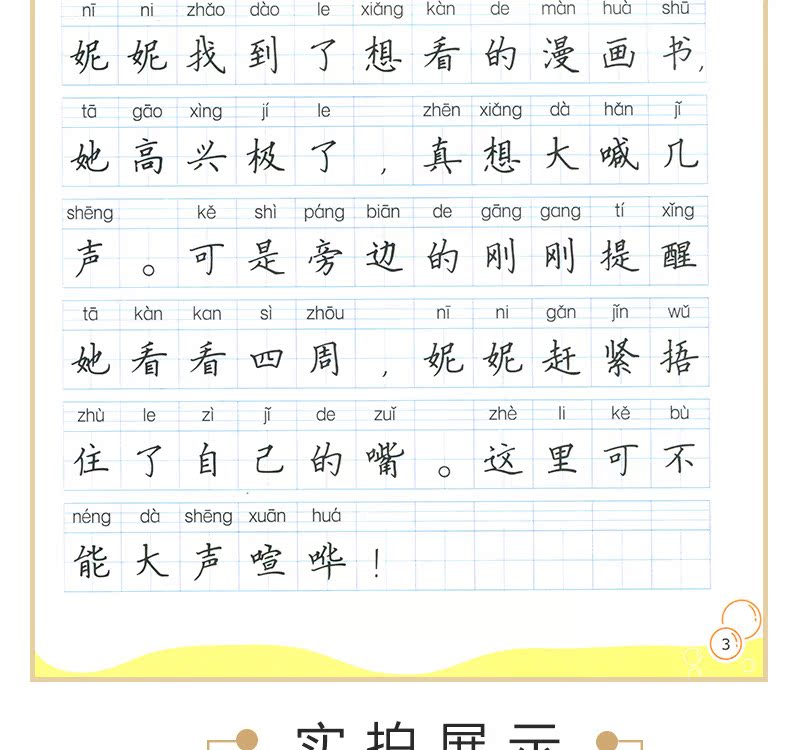 nī ni zhǎo dào le xiǎng kàn de màn huà shū
妮妮找到了想看的漫画书,
tā gāo xìng jí le zhēn xiǎng dà hǎn jǐ
她高兴极了,真想大喊几
shēng kě shì páng biān de gāng gang tí xǐng
声。可是旁边的刚刚提醒
tā kàn kan sì zhōu nī ni gǎn jǐn wǔ
她看看四周,妮妮赶紧捂
zhù le zì jǐ de zuǐ zhè li kě bù
住了自己的嘴。这里可不
néng dà shēng xuān huá
能大声喧哗!
3
实拍展示